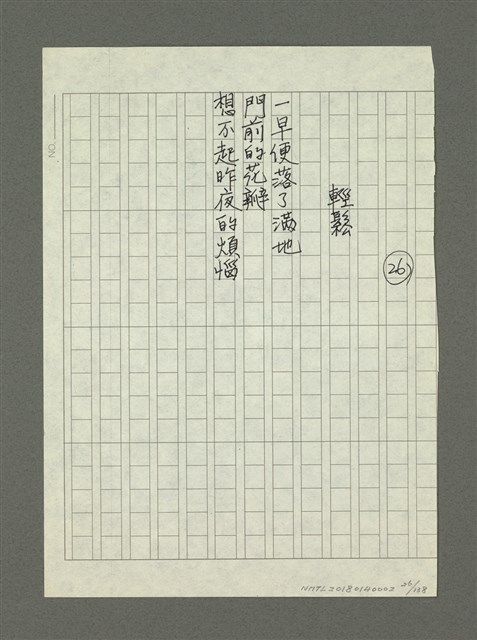 26
輕鬆
一早便落了滿地
門前的花瓣
想不起昨夜的煩惱
NO.
NMTL20180140002 26/138